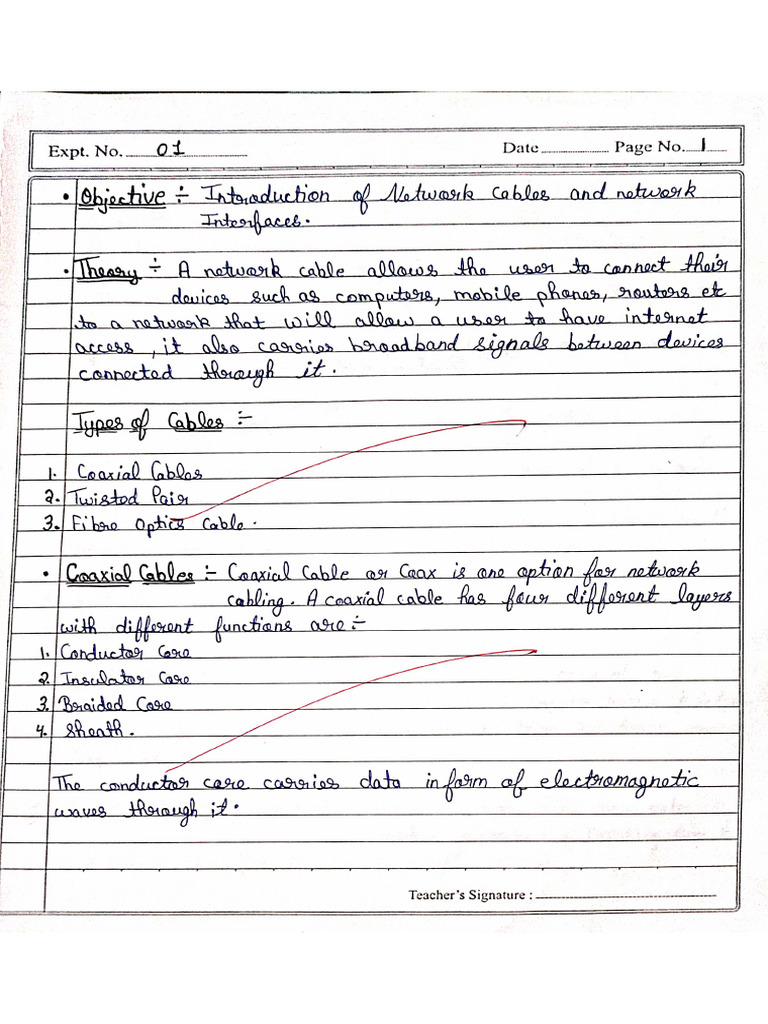 Expt. No. 01 Date Page No. 1
• Objective ÷ Introduction of Network Cables and network
Interfaces.
• Theory ÷ A network cable allows the user to connect their
devices such as computers, mobile phones, routers etc
to a network that will allow a user to have internet
access, it also carries broadband signals between devices
connected through it.
Types of Cables ÷
1. Coaxial Cables
2. Twisted Pair
3. Fibre Optics Cable.
• Coaxial Cables ÷ Coaxial Cable or Coax is one option for network
cabling. A coaxial cable has four different layers
with different functions are ÷
1. Conductor Core
2. Insulator Core
3. Braided Core
4. Sheath.
The conductor core carries data in form of electromagnetic
waves through it.
Teacher's Signature :